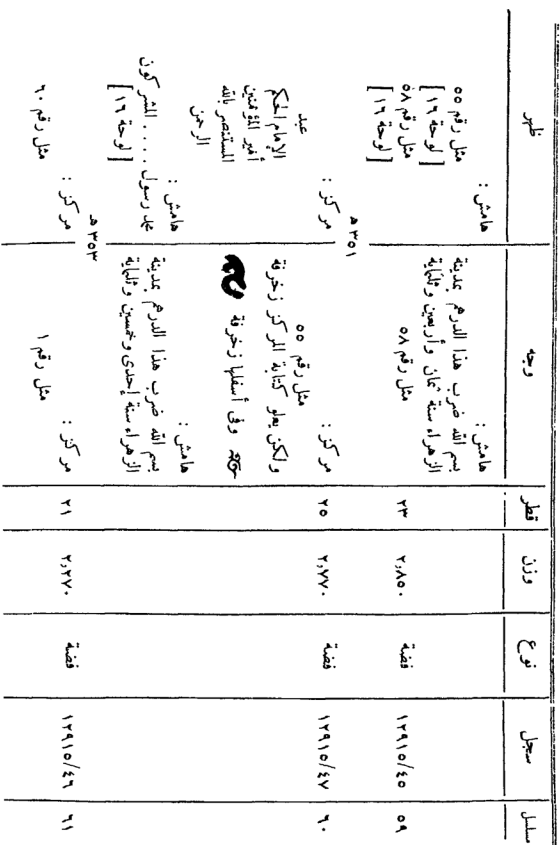 مسلسل
سجل
نوع
وزن
قطر
وجه
ظهر
٥٩
١٢٩١٥/٤٥
فضة
٢,٨٥٠
٢٣
هامش :
بسم الله ضرب هذا الدرهم بمدينة
الزهراء سنة ثمان وأربعين وثلثماية
مثل رقم ٥٨
هامش :
مثل رقم ٥٥
[ لوحة ١٦ ]
مثل رقم ٥٨
[ لوحة ١٦ ]
٣٥١ ھ
٦٠
١٢٩١٥/٤٧
فضة
٢,٧٧٠
٢٥
مركز :
مثل رقم ٥٥
ولكن يعلو كتابة المركز زخرفة
وفى أسفلها زخرفة
هامش :
بسم الله ضرب هذا الدرهم بمدينة
الزهراء سنة إحدى وخمسين وثلثماية
مركز :
عبد
الإمام الحكم
أمير المؤمنين
المستنصر بالله
الرحمن
هامش :
محمد رسول .... المشركون
[ لوحة ١٦ ]
٣٥٣ ھ
٦١
١٢٩١٥/٤٦
فضة
٢,٢٧٠
٢١
مركز :
مثل رقم ١
مركز :
مثل رقم ٦٠